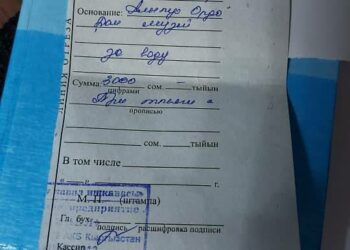 ЛИНИЯ ОТРЕЗА
Основание: "Алтын Ордо"
Дом музей
за воду
Сумма: 3000 – сом. – тыйын
цифрами
Три тысяч с
прописью
сом. тыйын
В том числе
" " г.
М. П. (штампа)
предприятие
Гл. бух.
подпись расшифровка подписи
Кыргызстан
Кассир